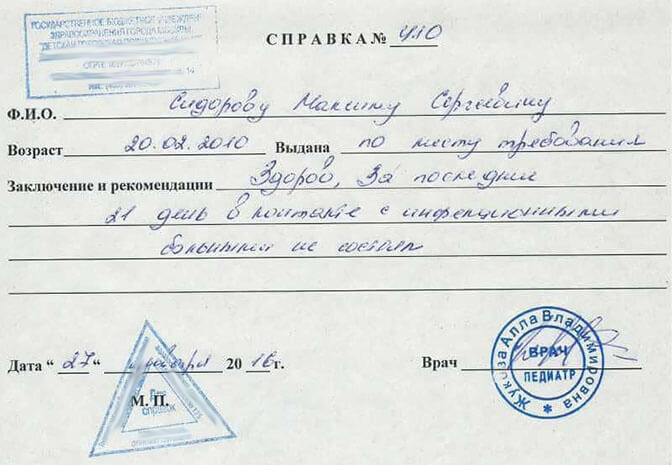 ГОСУДАРСТВЕННОЕ БЮДЖЕТНОЕ УЧРЕЖДЕН
ЗДРАВООХРАНЕНИЯ ГОРОДА МОСКВЫ
ДЕТСКАЯ ГОРОДСКАЯ
СПРАВКА №
Ф.И.О. Сидорову Максиму Сергеевичу
Возраст 20.02.2010 Выдана по месту требования
Заключение и рекомендации Здоров, За последние
21 день в контакте с инфекционными
больными не состоял
Дата “ 27 “ 20 16 г. Врач
М. П.
Для
справок
Жукова Алла Владимировна
ВРАЧ
ПЕДИАТР